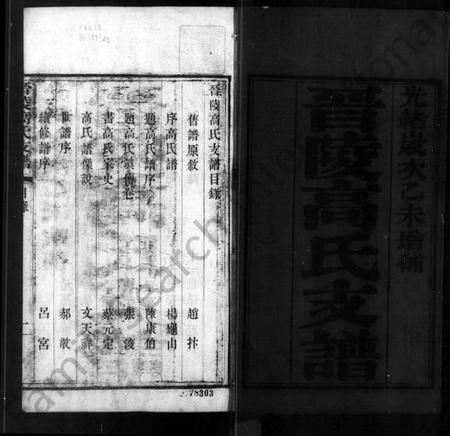 光緒歲次乙未增補
晉陵高氏支譜
晉陵高氏支譜目錄
舊譜原敘 趙抃
序高氏譜 楊龜山
題高氏譜序 陳康伯
題高氏 張浚
書高氏家史 蔡元定
高氏譜像說 文天祥
世譜序 郝敬
續修譜序 呂宮
晉陵高氏支譜 目錄 一
78303